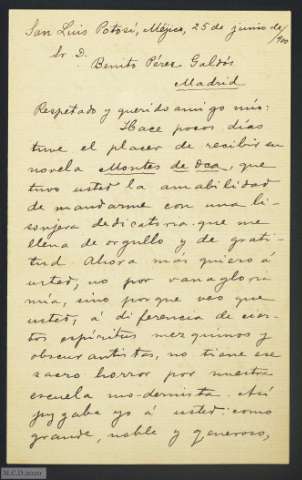 San Luis Potosí, Méjico, 25 de junio de /900
Sr D.
Benito Pérez Galdós
Madrid
Respetado y querido amigo mío:
Hace pocos días
tuve el placer de recibir su
novela Montes de Oca, que
tuvo usted la amabilidad
de mandarme con una li-
sonjera dedicatoria que me
llena de orgullo y de grati-
tud. Ahora más quiero á
usted, no por vanagloria
mía, sino porque veo que
usted, á diferencia de cier-
tos espíritus mezquinos y
obscurantistas, no tiene ese
sacro horror por nuestra
escuela modernista. Así
juzgaba yo á usted: como
grande, noble y generoso,